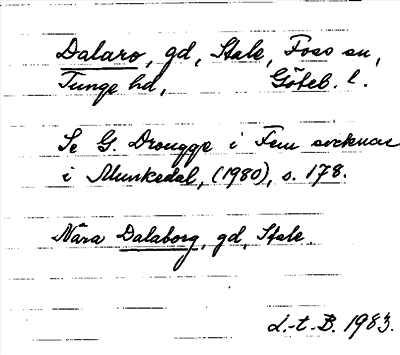 Dalaro, gd, Stale, Foss sn,
Tunge hd, Göteb. l.
Se G. Drougge i Fem socknar
i Munkedal, (1980), s. 178.
Nära Dalaborg, gd, Stale.
L.-t.-B. 1983.